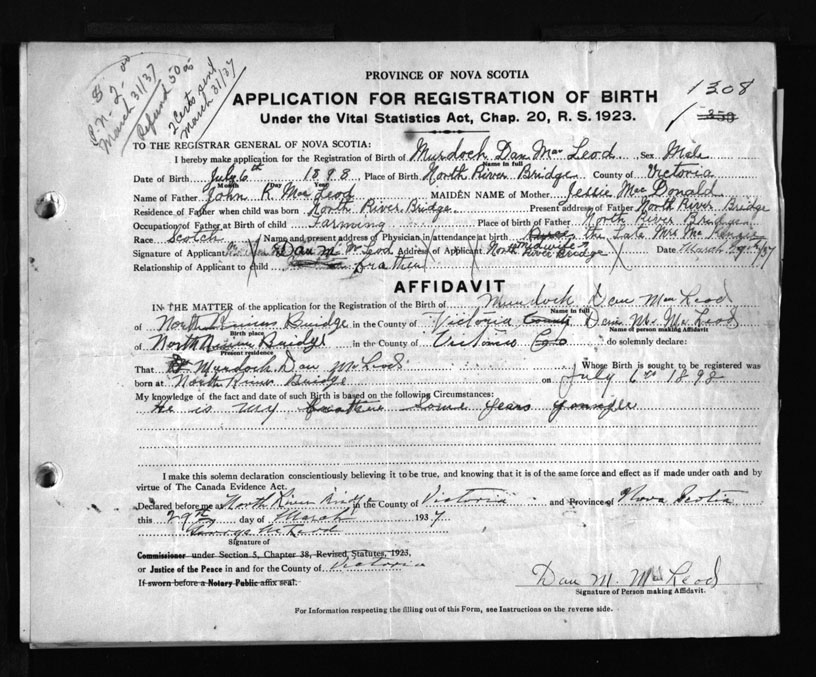 $ 2.00
P.N.
March 31/37
Refund 50¢
2 Certs sent
March 31/37
1308
PROVINCE OF NOVA SCOTIA
APPLICATION FOR REGISTRATION OF BIRTH
Under the Vital Statistics Act, Chap. 20, R. S. 1923.
TO THE REGISTRAR GENERAL OF NOVA SCOTIA:
I hereby make application for the Registration of Birth of Murdoch Dan Mac Leod Sex Male
Name in full
Date of Birth July 6th 1898 Place of Birth North River Bridge County of Victoria
Month Day Year
Name of Father John R Mac Leod MAIDEN NAME of Mother Jessie Mac Donald
Residence of Father when child was born North River Bridge Present address of Father North River Bridge
Occupation of Father at Birth of child Farming Place of birth of Father North River Bridge
Race Scotch Name and present address of Physician in attendance at birth the late Mrs Mc Kenzie
midwife
Signature of Applicant Dan M. Mc Leod Address of Applicant North River Bridge Date March 29th/37
Relationship of Applicant to child brother
AFFIDAVIT
IN THE MATTER of the application for the Registration of the Birth of Murdoch Dan Mac Leod
Name in full
of North River Bridge in the County of Victoria County Dan M. Mc Leod
Birth place Name of person making Affidavit
of North River Bridge in the County of Victoria Co do solemnly declare:
Present residence
That Murdoch Dan McLeod Whose Birth is sought to be registered was
born at North River Bridge on July 6th 1898
My knowledge of the fact and date of such Birth is based on the following Circumstances:
He is my brother some years younger
I make this solemn declaration conscientiously believing it to be true, and knowing that it is of the same force and effect as if made under oath and by
virtue of The Canada Evidence Act.
Declared before me at North River Bridge in the County of Victoria and Province of Nova Scotia
this 29th day of March 1937
George McLeod
Signature of
Commissioner under Section 5, Chapter 38, Revised Statutes, 1923,
or Justice of the Peace in and for the County of Victoria
If sworn before a Notary Public affix seal.
Dan M. Mac Leod
Signature of Person making Affidavit.
For Information respecting the filling out of this Form, see Instructions on the reverse side.